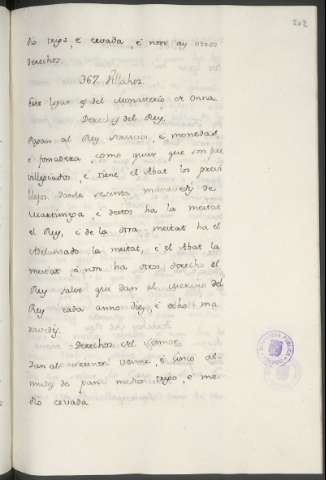 202
dio trigo, e cevada, e non ay otros
derechos.
367 Villahoz
Este logar es del Monasterio de Onna
Derechos del Rey.
Pagan al Rey servicios, e monedas
e fonsadera como quier que son pre
villegiados, e tiene el Abat los previ
llejos, danle sesenta maravedis de
Martiniega, e destos ha la meitat
el Rey, e de la otra meitat ha el
Adelantado la meitat, e el Abat la
meitat e non ha otro derecho el
Rey salvo que dan al merino del
Rey cada anno diez, e ocho ma
ravedis.
Derechos del Sennor
Dan al Sennor veinte, e cinco al
mudes de pan medio trigo, e me
dio cevada